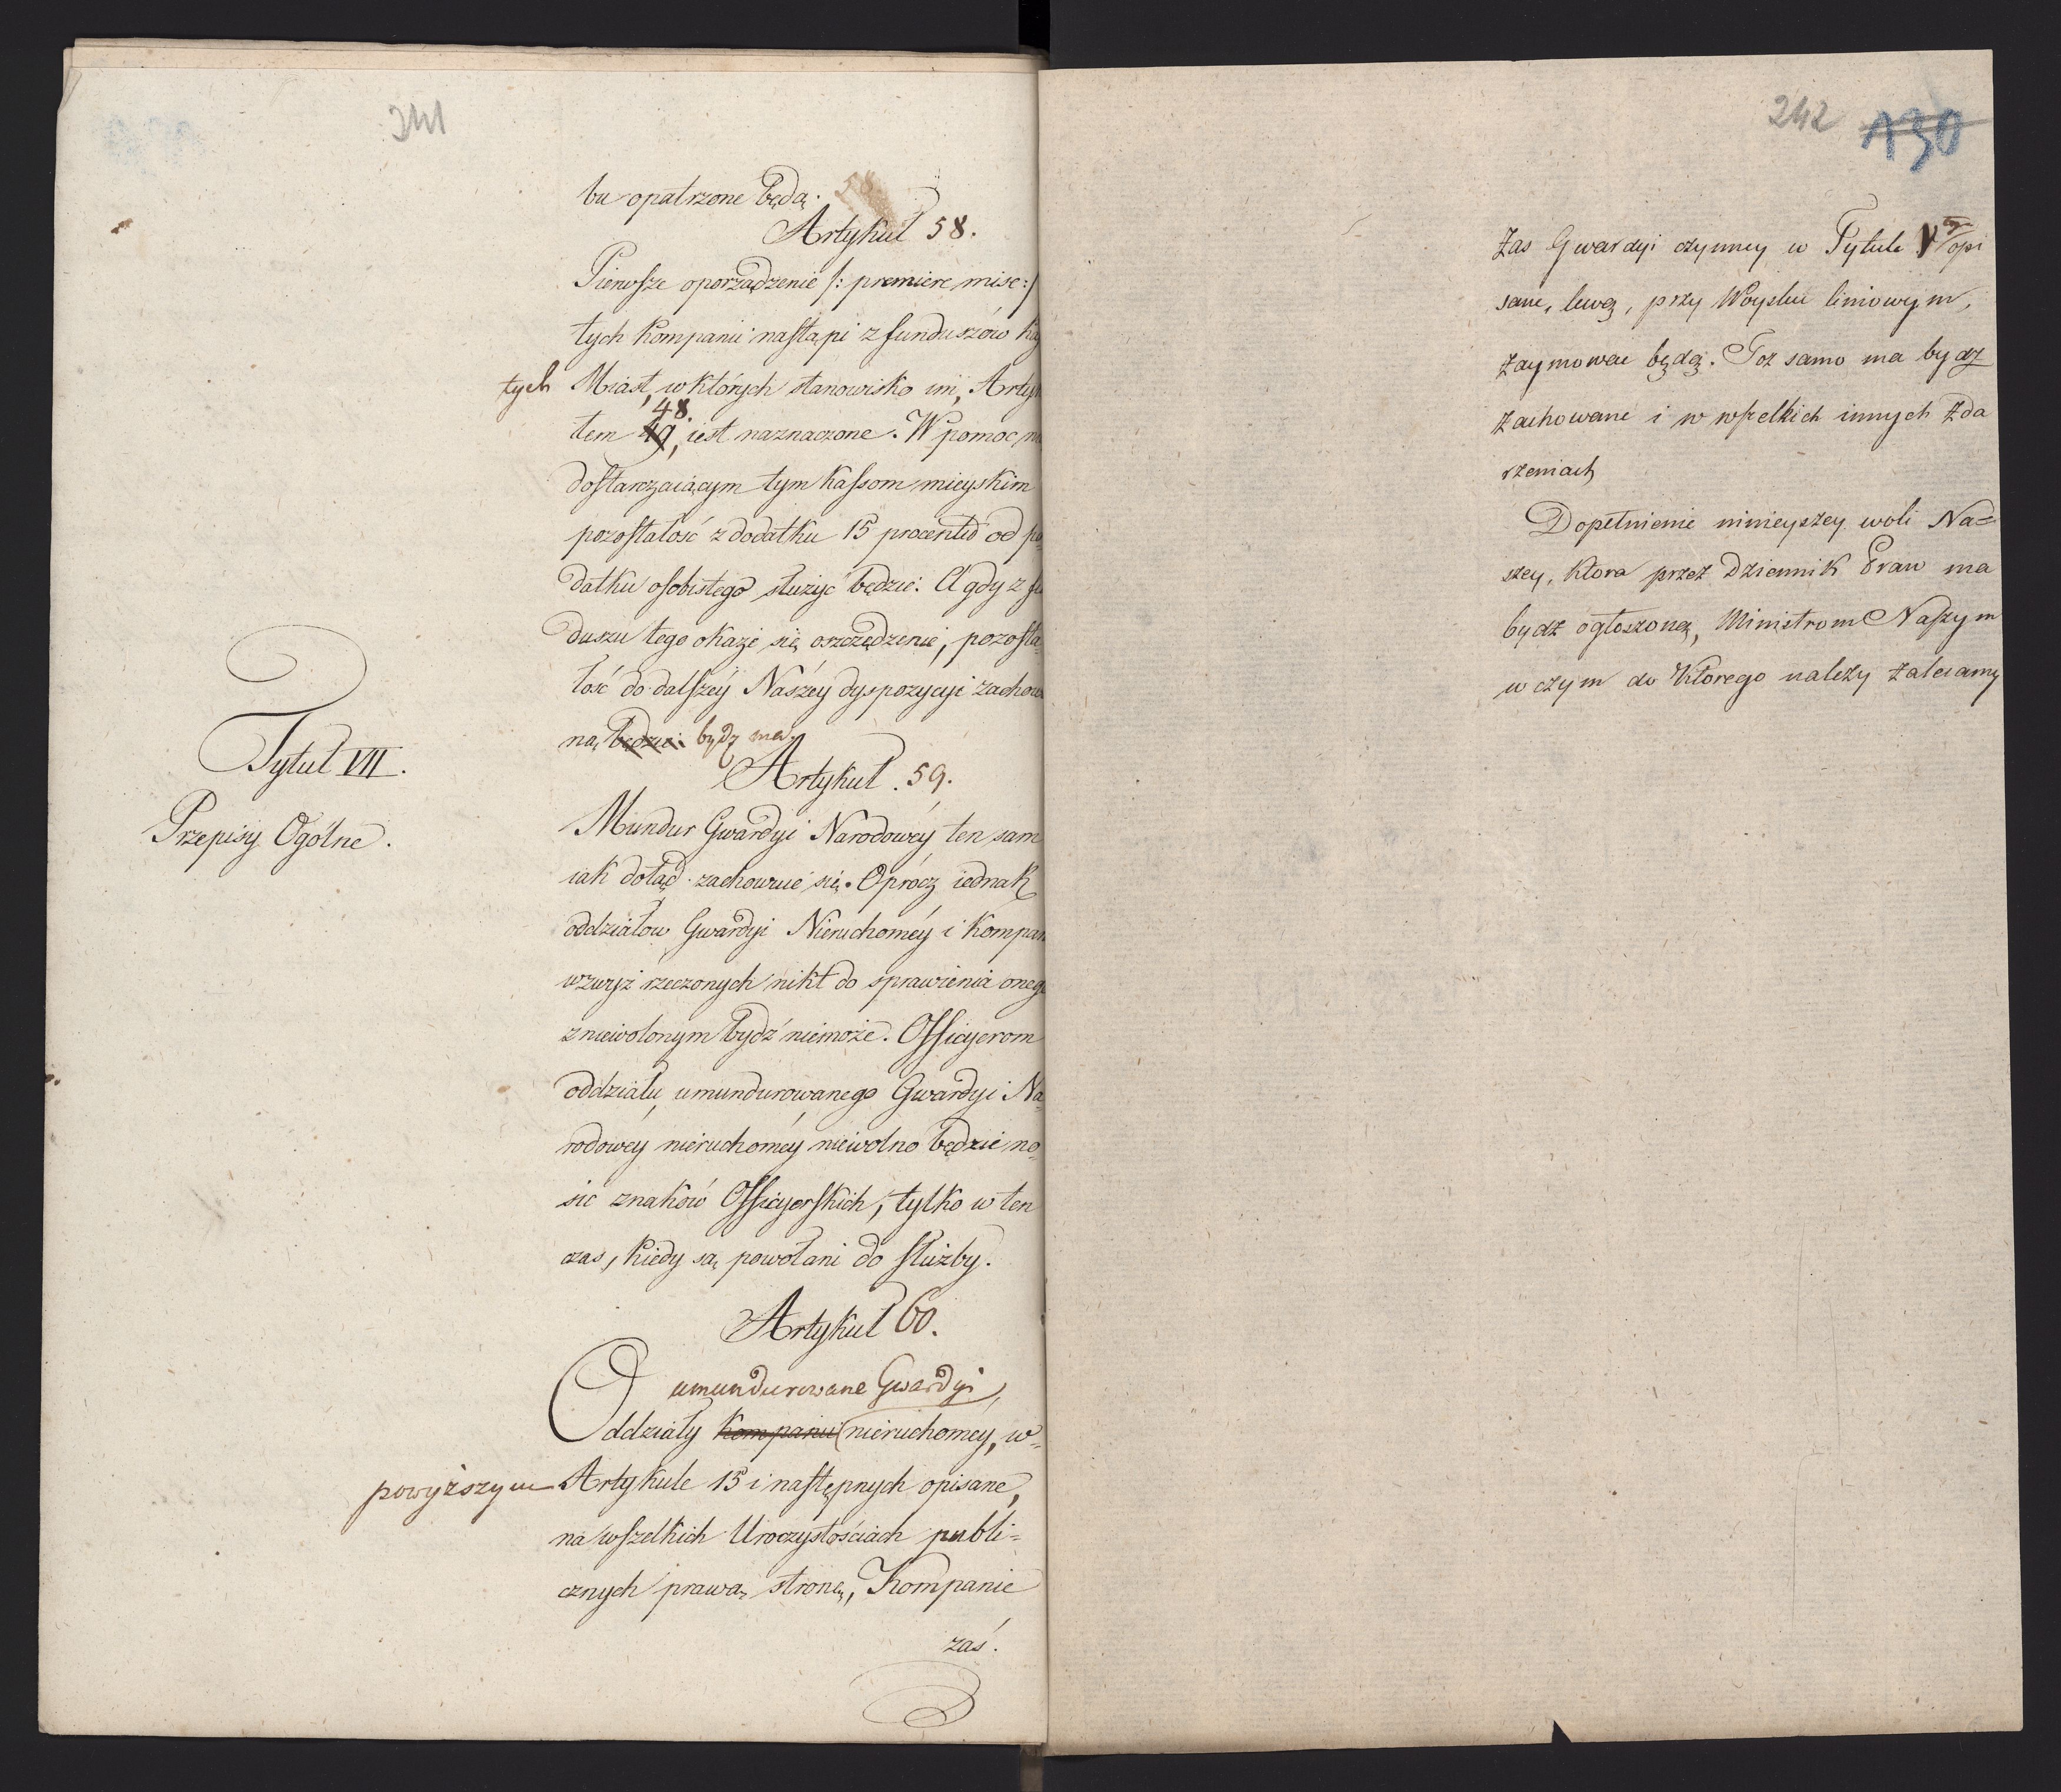 241
bu opatrzone będą.
58
Artykuł 58.
Pierwsze oporządzenie /: premiere mise :/
tych kompanii nastąpi z funduszów ka
tych Miast, w których stanowisko im, Arty
48.
tem 49, iest naznaczone. W pomoc n
dostarczaiącym tym kassom mieyskim
pozostałość z dodatku 15 procentu od po=
datku osobistego służyć będzie: A gdy z fu
duszu tego okaże się oszczędzenie, pozosta=
łość do dalszéy Naszéy dyspozycyi zacho
na, będzie bydz ma.
Tytuł VII.
Przepisy Ogólne.
Artykuł 59.
Mundur Gwardyi Narodowéy ten sam
iak dotąd zachowuie się. Oprócz iednak
oddziałow Gwardyi Nieruchoméy i Kompan
wzwyż rzeczonych nikt do sprawienia oneg
zniewolonym bydź niemoże. Officyerom
oddziału umundurowanego Gwardyi Na=
rodowey nieruchoméy niewolno będzie no=
sić znaków Officyerskich, tylko w ten
czas, kiedy są powołani do służby.
Artykuł 60.
umundurowane Gwardyi
Oddziały kompanii nieruchomey, w=
powyższym Artykule 15 i następnych opisane,
na wszelkich Uroczystościach publi=
cznych prawą stronę, Kompanie
zaś.
242 130
Zas Gwardyi czynney w Tytule V opi
sane, lewą, przy Woysku liniowym,
zaymować będą. Toż samo ma bydz
zachowane i w wszelkich innych zda
rzeniach
Dopełnienie ninieyszey woli Na=
szey, ktora przez Dziennik Praw ma
bydz ogłoszoną, Ministrom Naszym
w czym do ktorego należy zalecamy